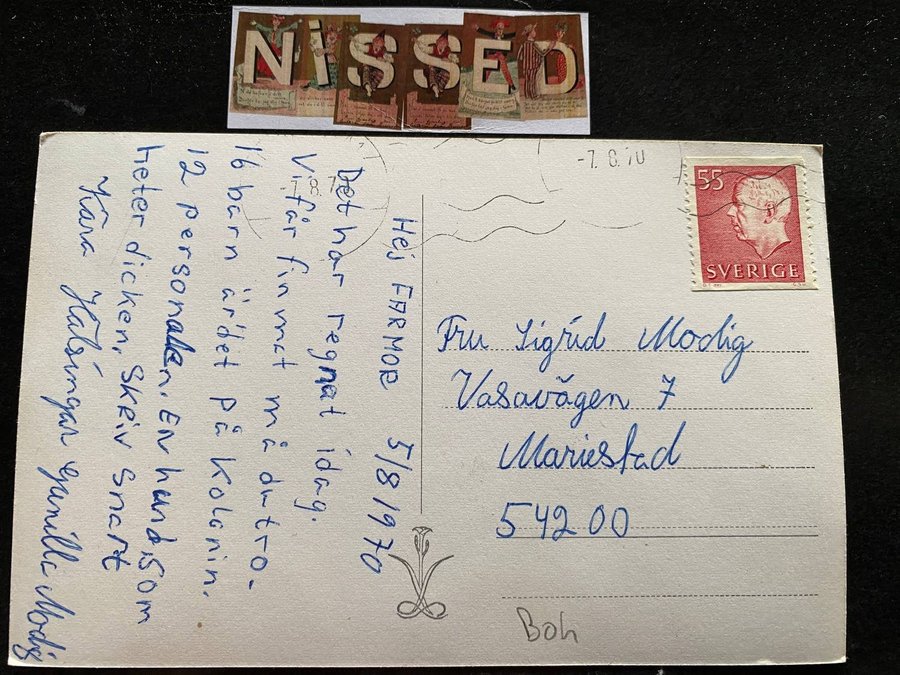 NiSSED
-7. 8. 7
-7. 8. 70
55
SVERIGE
Hej FARMOR 5/8 1970
Det har regnat idag.
Vi får finmat må dutro.
16 barn ärdet på Kolonin.
12 personalen. En hund som
heter dicken. Skriv snart
Kära Hälsingar gunilla Modig
Fru Sigrid Modig
Vasavägen 7
Mariestad
542 00
Boh